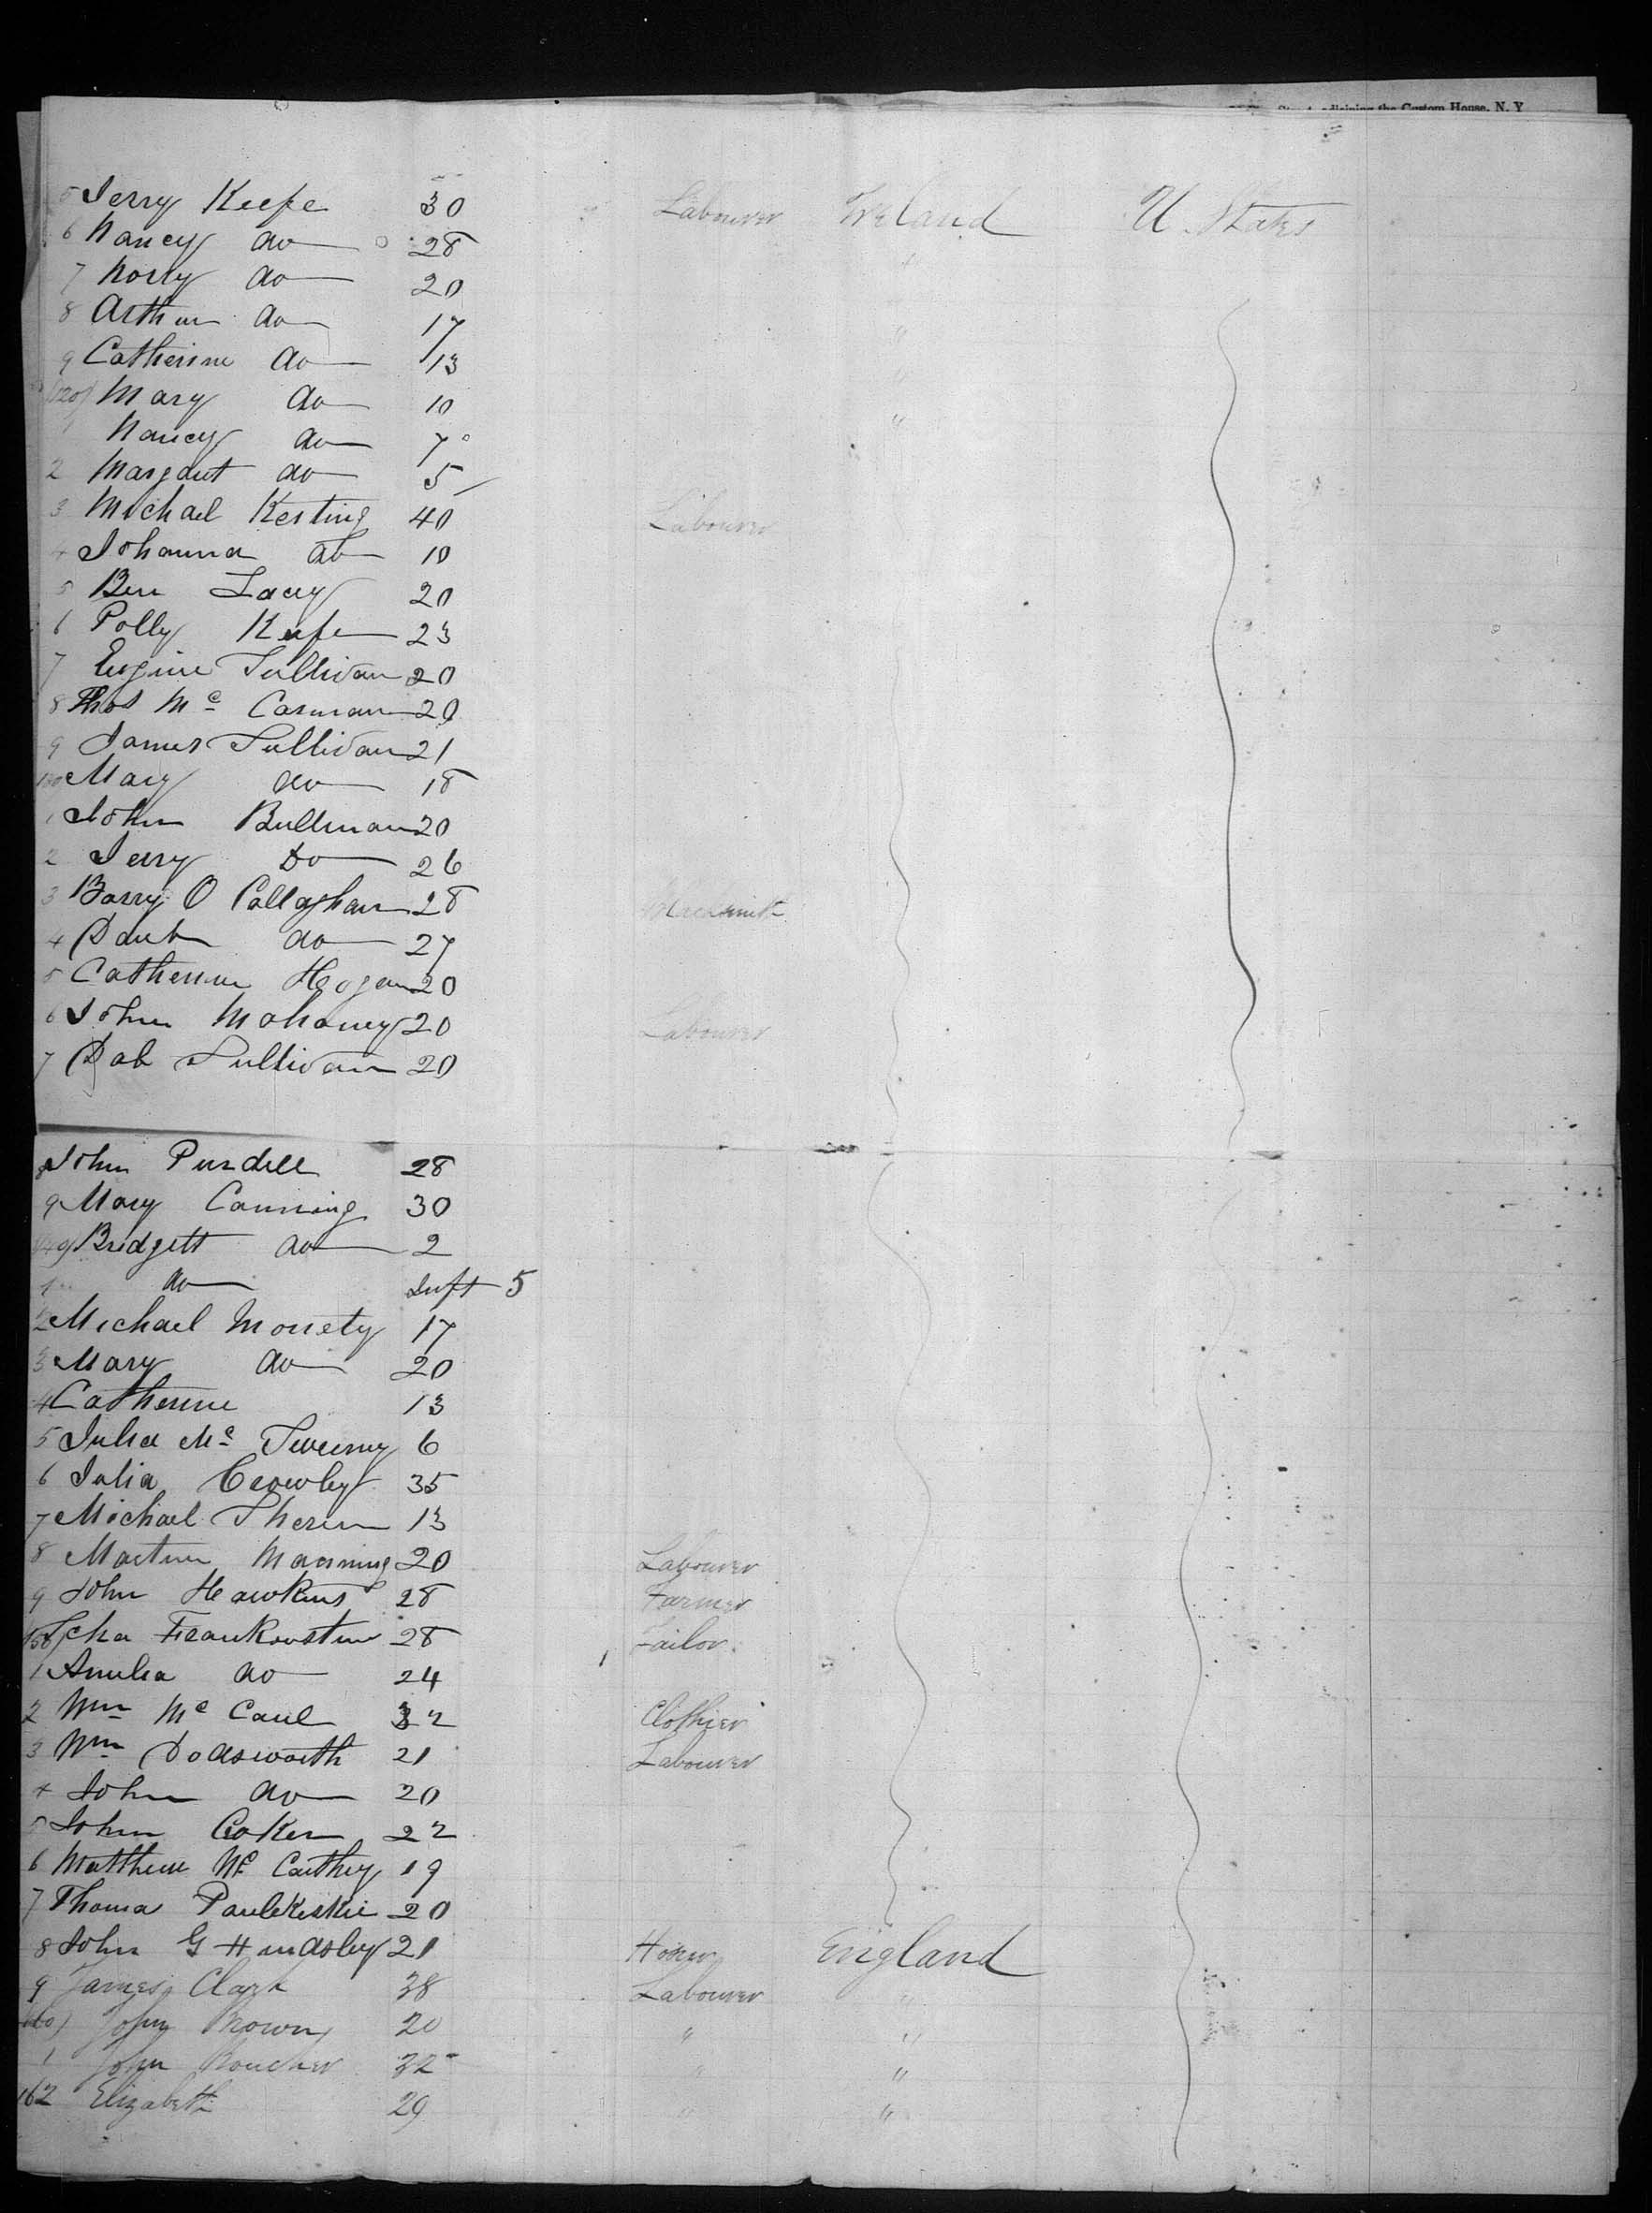 Street adjoining the Custom House, N. Y
5 Jerry Keefe 30 Labourer Ireland U. States
6 Nancy do 28
7 Norry do 20
8 Arthur do 17 "
9 Catherine do 13
120 Mary do 10 "
1 Nancy do 7
2 Margaret do 5
3 Michael Kesting 40 Labourer
4 Johanna do 10
5 Ben Lacey 20
6 Polly Keefe 23
7 Eugine Sullivan 20
8 Thos Mc Carman 20
9 James Sullivan 21
130 Mary do 18
1 John Bullman 20
2 Jerry Do 26
3 Barry O Callaghan 28 Blacksmith
4 do 27
5 Catherine Hogan 20
6 John Mahoney 20 Labourer
7 Sullivan 20
8 John Purdell 28
9 Mary Canning 30
140 Bridgett do 2
1 do Inft 5
2 Michael 17
3 Mary do 20
4 Catherine 13
5 Julia Mc Sweeny 6
6 Julia Crowley 35
7 Michael 13
8 Martin Manning 20 Labourer
9 John Hawkins 28 Farmer
150 28 Tailor
1 Amelia do 24
2 Wm Mc Caul 32 Clothier
3 Wm Dodsworth 21 Labourer
4 John do 20
5 John Coker 22
6 Matthew Mc Carthey 19
7 Thoma 20
8 John G Hindsley 21 England
9 James Clark 38 Labourer "
160 John Brown 20 " "
1 John 32 " "
162 Elizabeth 29 " "